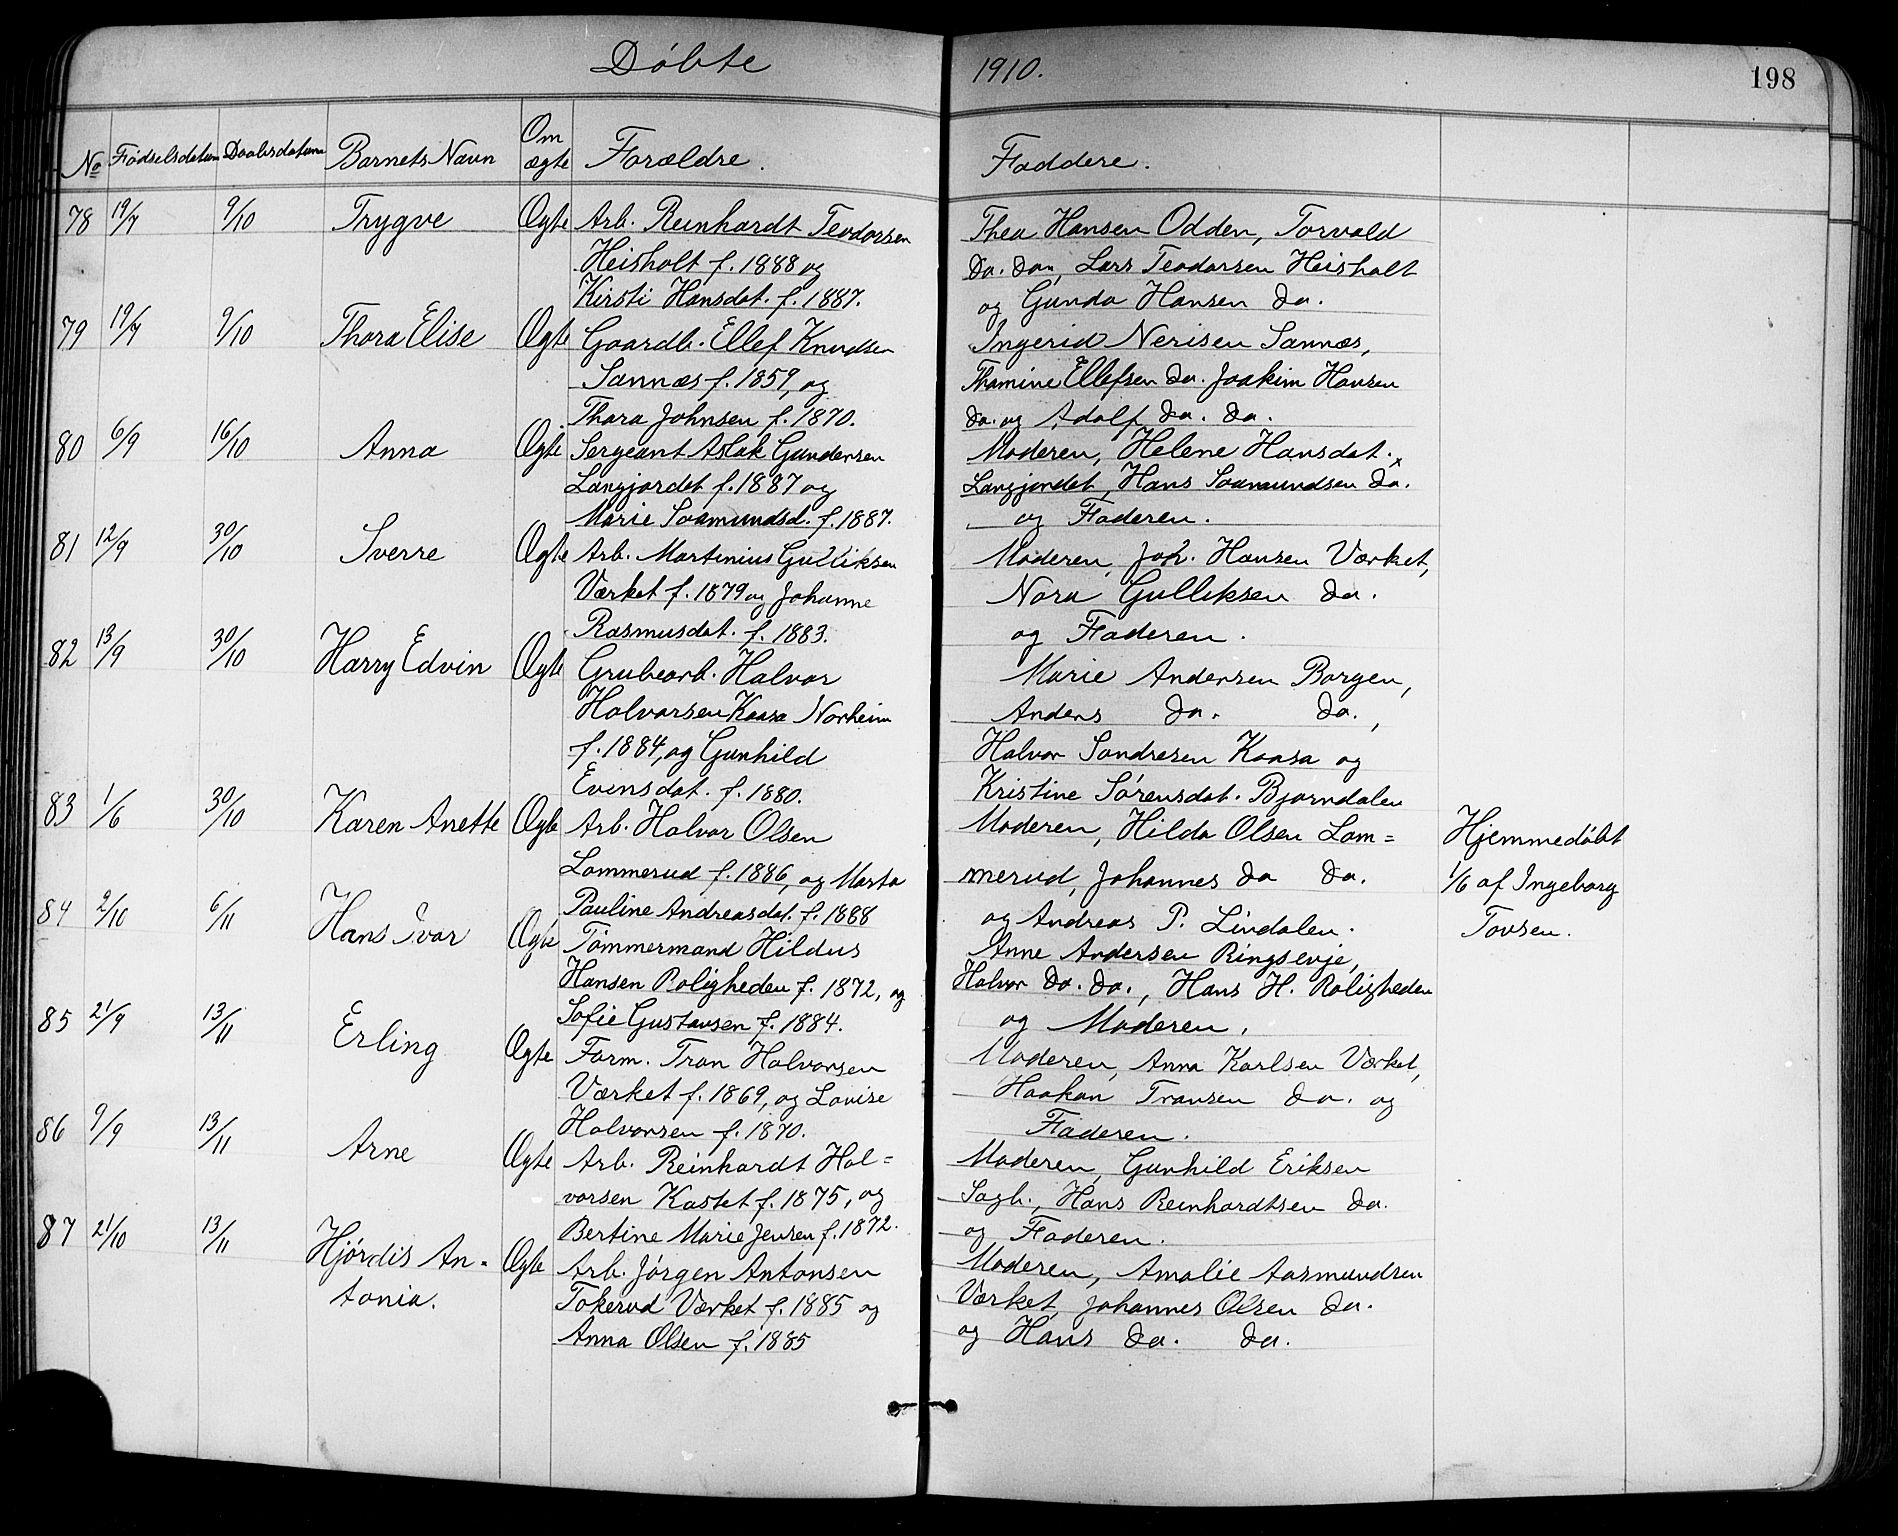 Døbte 1910. 198
No Fødselsdatum Daabsdatum Barnets Navn Om ægte Forældre. Faddere.
78 19/7 9/10 Trygve Ægte Arb. Reinhardt Teodorsen
Heisholt f. 1888 og
Kirsti Hansdat. f. 1887.
Thea Hansen Odden, Torvald
do. do., Lars Teodorsen Heisholt
og Gunda Hansen do.
79 19/7 9/10 Thora Elise Ægte Gaardb. Ellef Knudsen
Sannæs f. 1859, og
Thora Johnsen f. 1870.
Ingerid Nerisen Sannæs,
Thomine Ellefsen do. Joakim Hansen
do. og Adolf do. do.
80 6/9 16/10 Anna Ægte Sergeant Aslak Gundersen
Langjordet f. 1887 og
Marie Saamundsd. f. 1887.
Moderen, Helene Hansdat. x
Langjordet, Hans Saamundsen do.
og Faderen.
81 12/9 30/10 Sverre Ægte Arb. Martinius Gulliksen
Værket f. 1879 og Johanne
Rasmusdat. f. 1883.
Moderen, Joh. Hansen Værket,
Nora Gulliksen do.
og Faderen.
82 13/9 30/10 Harry Edvin Ægte Grubearb. Halvor
Halvorsen Kaasa Norheim
f. 1884, og Gunhild
Evensdat. f. 1880.
Marie Andersen Borgen,
Anders do. do.,
Halvor Sondresen Kaasa og
Kristine Sørensdat. Bjorndalen
83 1/6 30/10 Karen Anette Ægte Arb. Halvor Olsen
Lommerud f. 1886, og Marta
Pauline Andreasdat. f. 1888
Moderen, Hilda Olsen Lom=
merud, Johannes do do.
og Andreas P. Lindalen.
Hjemmedøbt
1/6 af Ingeborg
Tovsen.
84 2/10 6/11 Hans Ivar Ægte Tømmermand Hildus
Hansen Roligheden f. 1872, og
Sofie Gustavsen f. 1884.
Anne Andersen Ringsevje,
Halvor do. do., Hans H. Roligheden
og Moderen.
85 21/9 13/11 Erling Ægte Form. Tron Halvorsen
Værket f. 1869, og Lovise
Halvorsen f. 1870.
Moderen, Anna Karlsen Værket,
Haakon Tronsen do. og
Faderen.
86 9/9 13/11 Arne Ægte Arb. Reinhardt Hal=
vorsen Kastet f. 1875, og
Bertine Marie Jensen f. 1872.
Moderen, Gunhild Eriksen
Sagb., Hans Reinhardtsen do.
og Faderen.
87 21/10 13/11 Hjørdis An-
tonia. Ægte Arb. Jørgen Antonsen
Tokerud Værket f. 1885 og
Anna Olsen f. 1885
Moderen, Amalie Aasmundsen
Værket, Johannes Olsen do.
og Hans do. do.